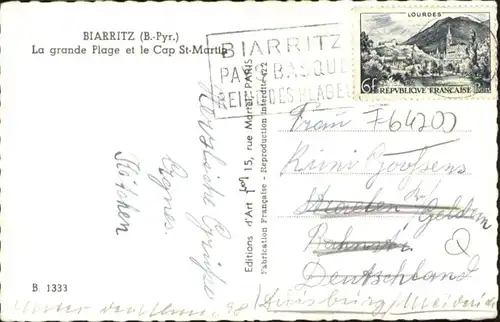 BIARRITZ (B.-Pyr.)
La grande Plage et le Cap St-Martin
BIARRITZ
PAYS BASQUE
REINE DES PLAGES
LOURDES
6F REPVBLIQVE FRANÇAISE
Herzliche Grüße
Agnes
Käthchen
Editions d'Art 15, rue Martel, PARIS
Fabrication Française - Reproduction Interdite
Frau F64200
Goossens
Straelen
Geldern
Bahnhof
Deutschland
B 1333
Duisburg/Meiderich